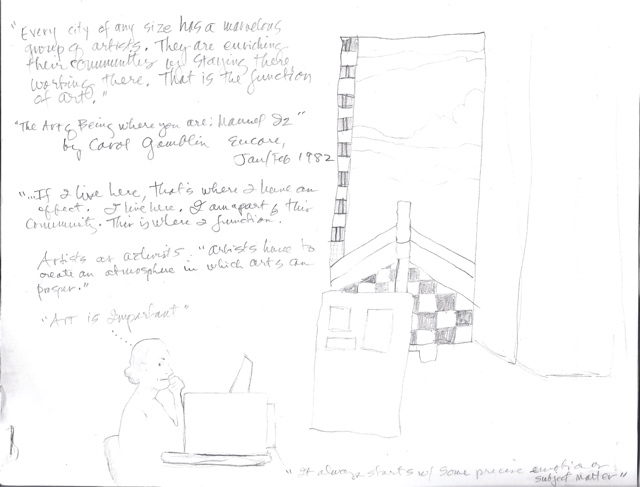 "Every city of any size has a marvelous
group of artists. They are enriching
their communities by staying there
working there. That is the function
of art."
"The Art of Being where you are: Manuel Iz"
by Carol Gamblin Encore,
Jan/Feb 1982
"...If I live here, that's where I have an
effect. I live here. I am a part of this
Community. This is where I function.
Artists as activists: "artists have to
create an atmosphere in which arts can
prosper."
"Art is Important"
"It always starts w/ some precise emotion or
subject matter"